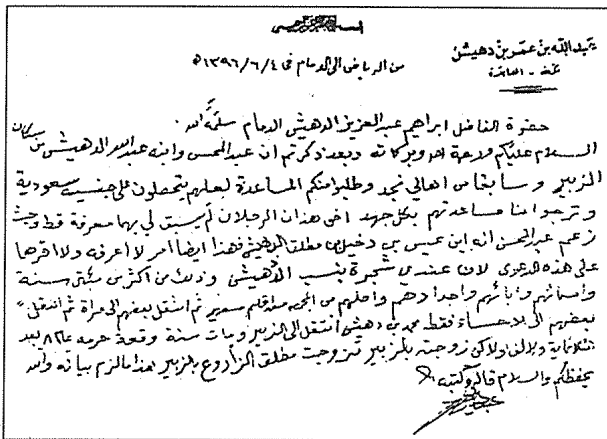 بسم الله الرحمن الرحيم
عبدالله بن عمر بن دهيش
مكة - العابدة
من الرياض الى الدمام في ١٣٩٦/٦/٤ ه
حضرة الفاضل ابراهيم عبدالعزيز الدهيشي الدمام سلمه الله
السلام عليكم ورحمة الله وبركاته وبعد ذكرتم ان عبدالمحسن وابنه عبدالله الدهيشي من سكان
الزبير وسابقا من اهالي نجد وطلبوا منكم المساعدة لعلهم يتحصلون على جنسيه سعودية
وترجوا منا مساعدتهم بكل جهد اخي هذان الرجلان لم يسبق لي بهما معرفة قط وحيث
زعم عبدالمحسن انه ابن عيسى بن دخيل بن مطلق الدهيشي فهذا ايضا أمر لا أعرفه ولا اقرها
على هذه الدعوى لان عندي شجرة بنسب الدهيشي وذلك من اكثر من مئتي سنة
واسمائهم وابائهم واجدادهم واصلهم من ثم انتقل بعضهم الى ثم انتقل
بعضهم الى الاحساء فقط محمد بن دهيش انتقل الى الزبير ومات سنة وقعة حرمه بعد
ولاكن زوجته بالزبير تزوجت مطلق بالزبير هذا مالزم بيانه والله
يحفظكم والسلام قاله وكتبه